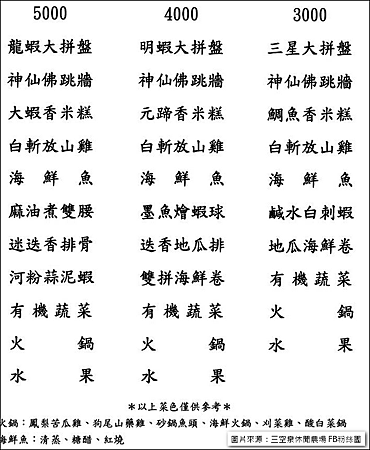 5000 4000 3000
龍蝦大拼盤 明蝦大拼盤 三星大拼盤
神仙佛跳牆 神仙佛跳牆 神仙佛跳牆
大蝦香米糕 元蹄香米糕 鯛魚香米糕
白斬放山雞 白斬放山雞 白斬放山雞
海鮮魚 海鮮魚 海鮮魚
麻油煮雙腰 墨魚燴蝦球 鹹水白刺蝦
迷迭香排骨 迭香地瓜排 地瓜海鮮卷
河粉蒜泥蝦 雙拼海鮮卷 有機蔬菜
有機蔬菜 有機蔬菜 火鍋
火鍋 火鍋 水果
水果 水果
*以上菜色僅供參考*
火鍋：鳳梨苦瓜雞、狗尾山藥雞、砂鍋魚頭、海鮮火鍋、刈菜雞、酸白菜鍋
海鮮魚：清蒸、糖醋、紅燒
圖片來源：三空泉休閒農場 FB粉絲團